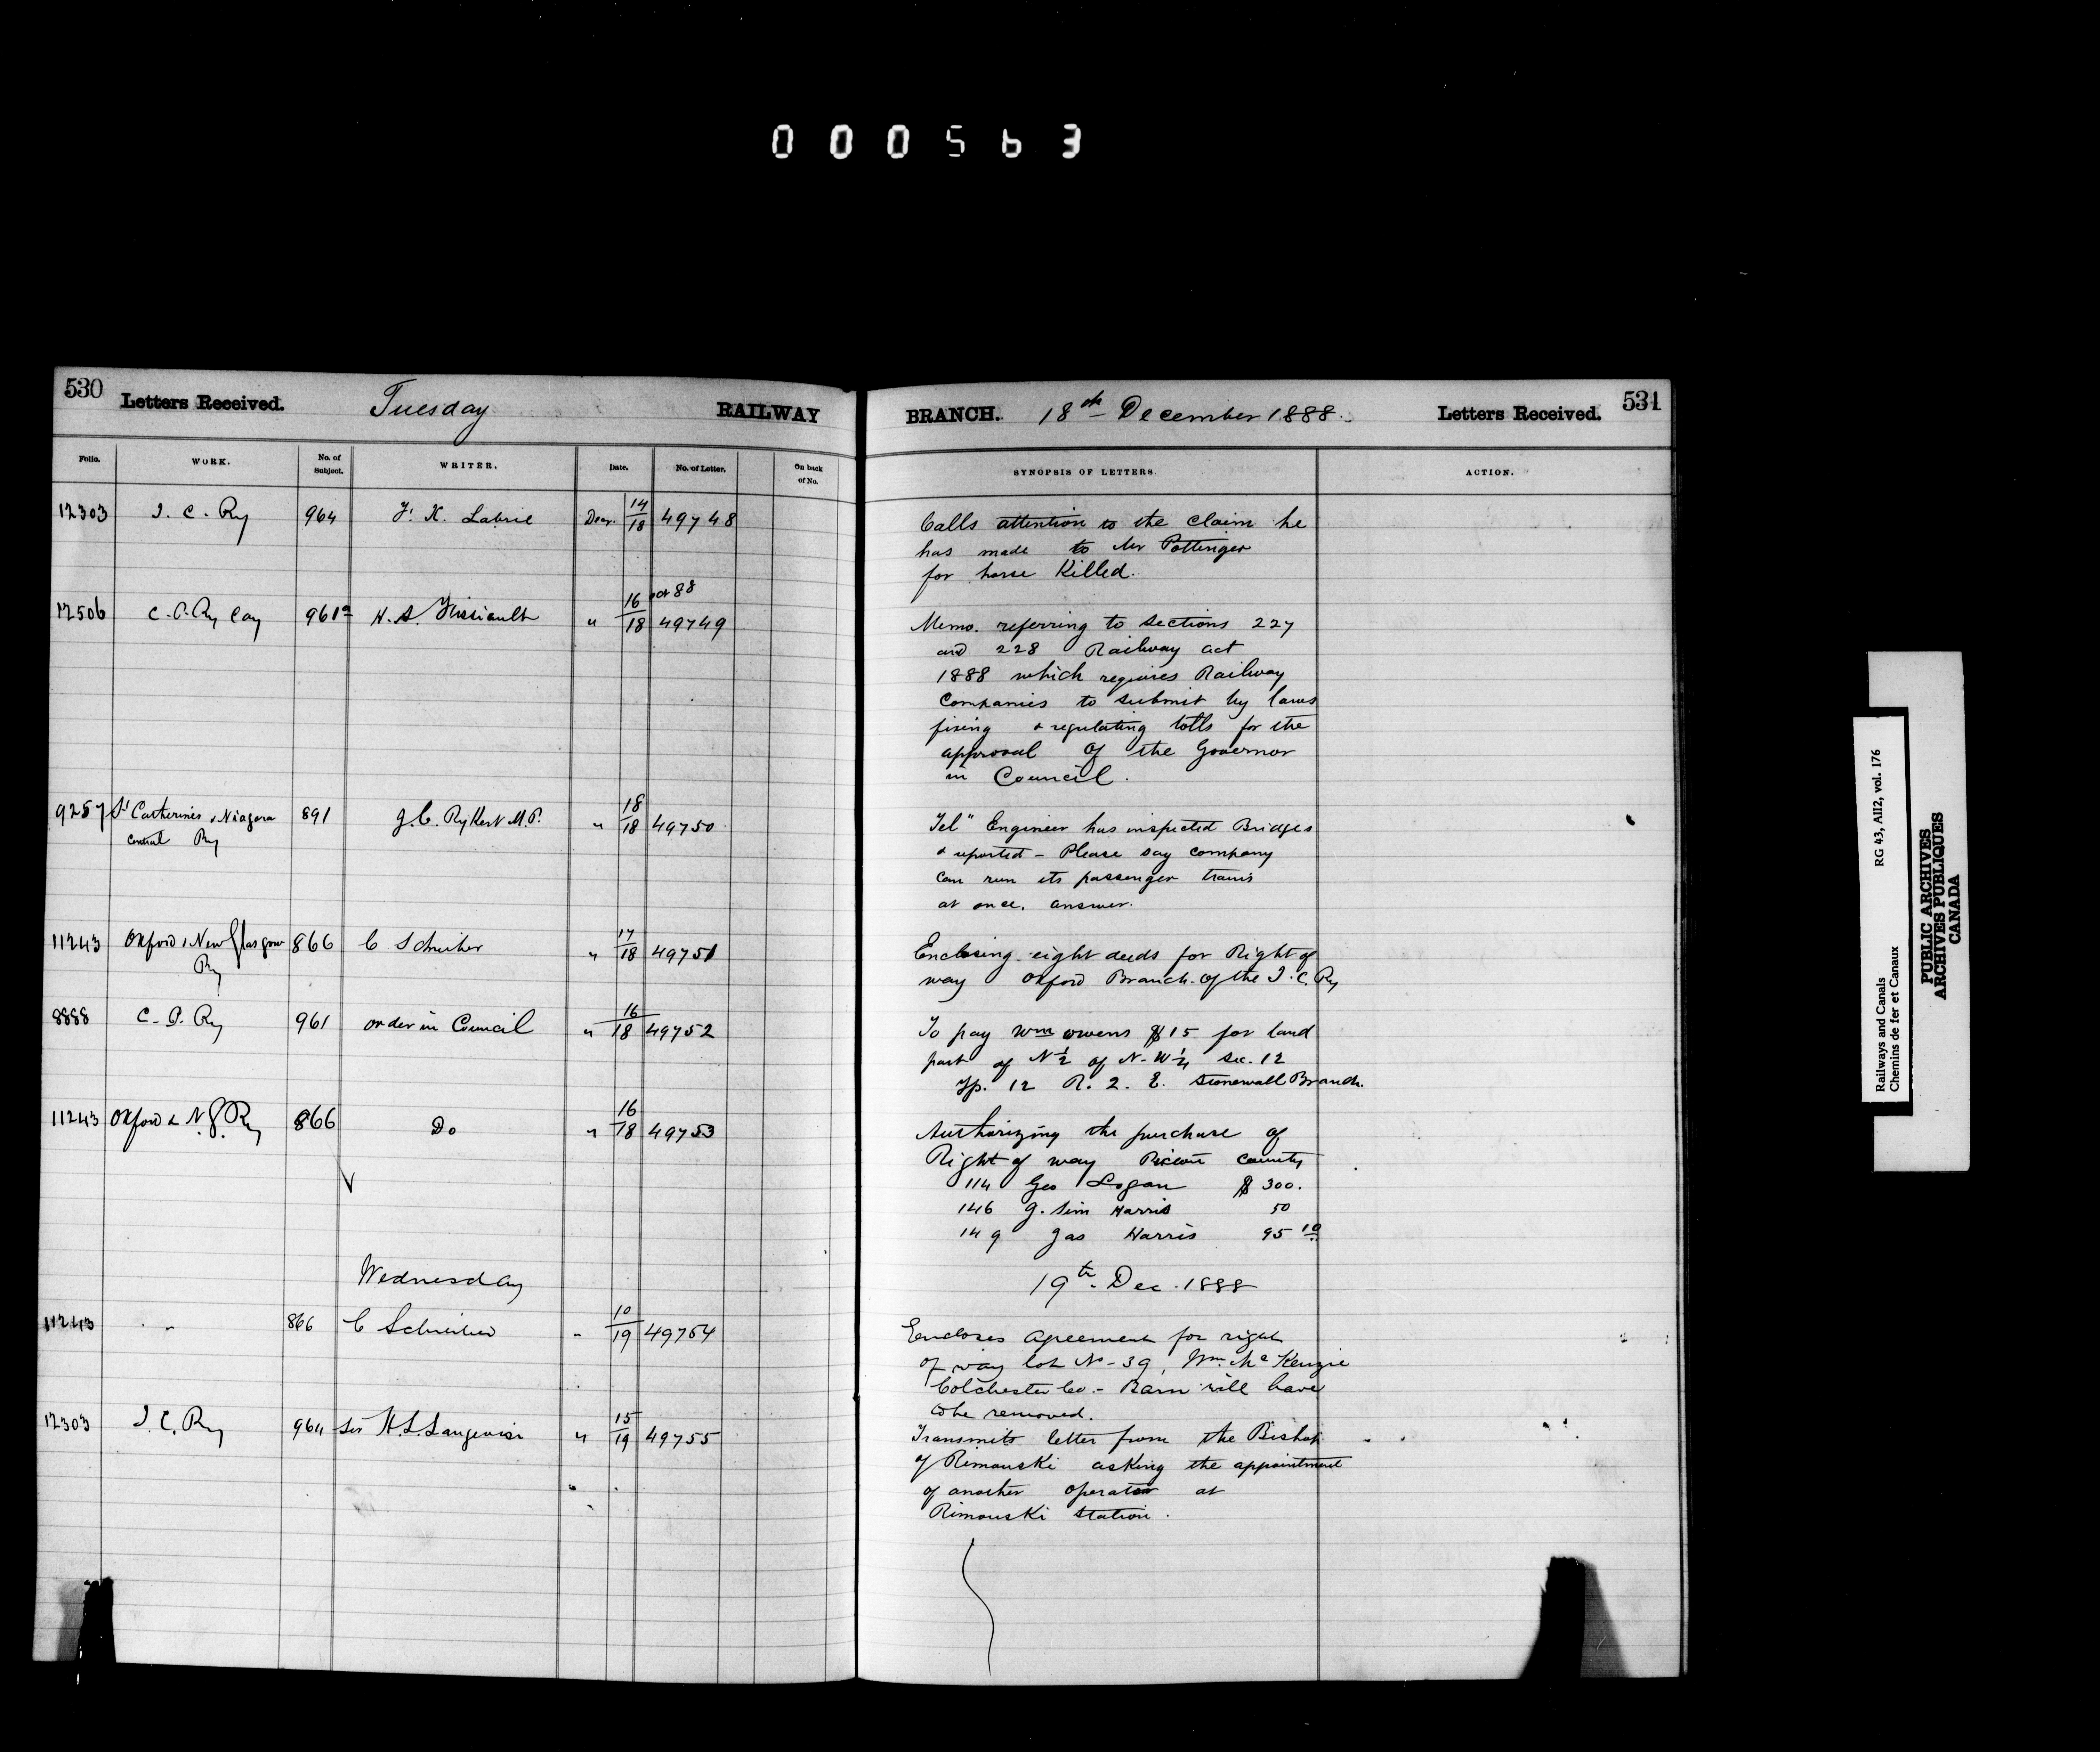 000563
530 Letters Received. Tuesday RAILWAY
BRANCH. 18th December 1888. Letters Received. 531
Folio. WORK. No. of Subject. WRITER. Date. No. of Letter. On back of No.
SYNOPSIS OF LETTERS. ACTION.
12303 I. C. Ry 964 F. X. Labrie Decr. 14/18 49748
Calls attention to the claim he
has made to Mr Pottinger
for horse Killed.
12506 C. P. Ry Coy 961a H. A. 16/18 49749
Memo. referring to sections 227
and 228 Railway act
1888 which requires Railway
Companies to submit by laws
fixing & regulating tolls for the
approval of the Governor
in Council.
9257 St Catherines & Niagara 891 J. C. Rykert M.P. " 18/18 49750
Central Ry
Tel" Engineer has inspected Bridges
& reported - Please say company
can run its passenger trains
at once. answer.
11243 Oxford & New Glasgow 866 C Schreiber " 17/18 49751
Ry
Enclosing eight deeds for Right of
way Oxford Branch of the I. C. Ry
8888 C. P. Ry 961 order in Council " 16/18 49752
To pay Wm Owens $15 for land
part of N 1/2 of N. W 1/4 Sec. 12
Tp. 12 R. 2. E. Stonewall Branch.
11243 Oxford & N. G. Ry 866 Do " 16/18 49753
Authorizing the purchase of
Right of way Pictou County
114 Geo Logan $ 300.
146 J. Sim Harris 50
149 Jas Harris 95 10
Wednesday
19th Dec. 1888
11243 " 866 C Schreiber " 10/19 49754
Encloses agreement for right
of way lot No - 39, Wm. McKenzie
Colchester Co. - Barn will have
to be removed.
12303 I. C. Ry 964 Sir H. L. Langevin " 15/19 49755
Transmits letter from the Bishop
of Rimouski asking the appointment
of another operator at
Rimouski Station.
Railways and Canals RG 43, AII2, vol. 176
Chemins de fer et Canaux
PUBLIC ARCHIVES
ARCHIVES PUBLIQUES
CANADA